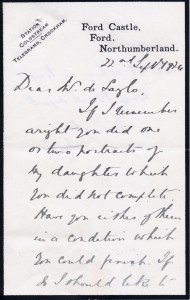 STATION
COLDSTREAM
TELEGRAMS, CROOKHAM.
Ford Castle,
Ford,
Northumberland.
22nd Sept 1926
Dear Mr de Laszlo.
If I remember
aright you did one
or two portraits of
my daughter which
you did not complete.
Have you either of them
in a condition which
you could finish. If
so I should like to